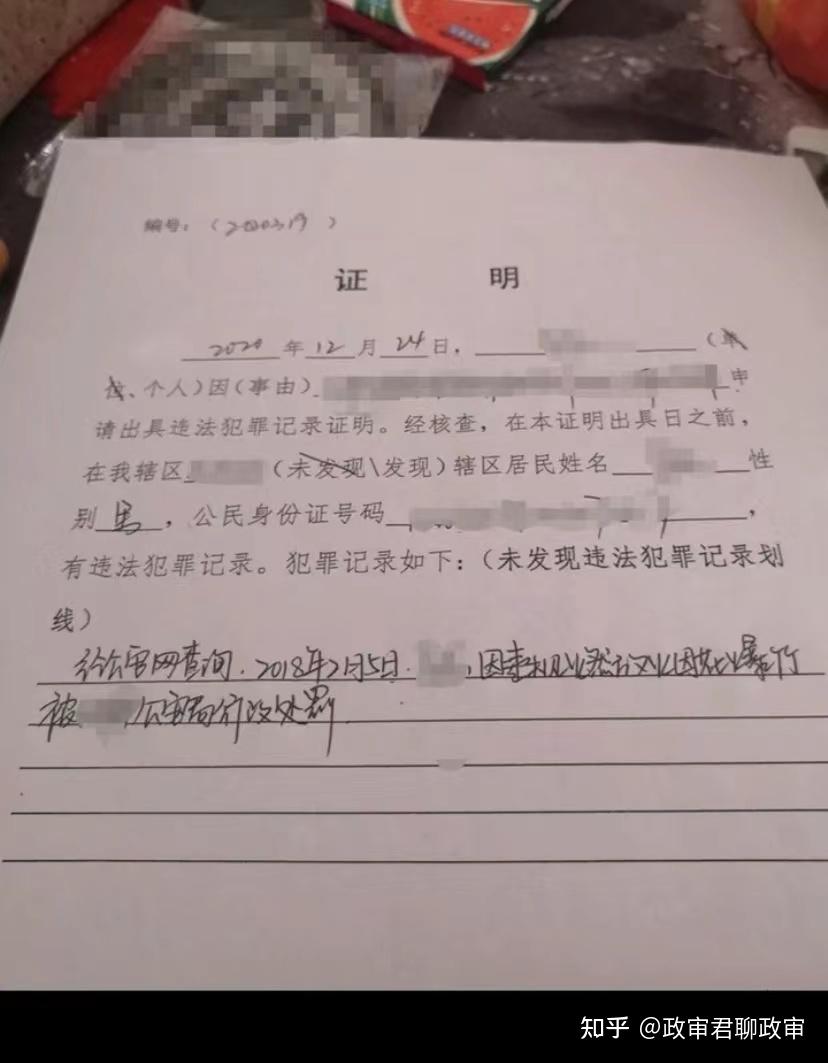 编号:(2020319)
证 明
2020年12月24日, (单
位、个人)因(事由) 申
请出具违法犯罪记录证明。经核查,在本证明出具日之前,
在我辖区 (未发现\发现)辖区居民姓名 性
别 男 ,公民身份证号码 ,
有违法犯罪记录。犯罪记录如下:(未发现违法犯罪记录划
线)
经公安网查询.2018年2月5日. ,因
被 公安局行政处罚
知乎 @政审君聊政审